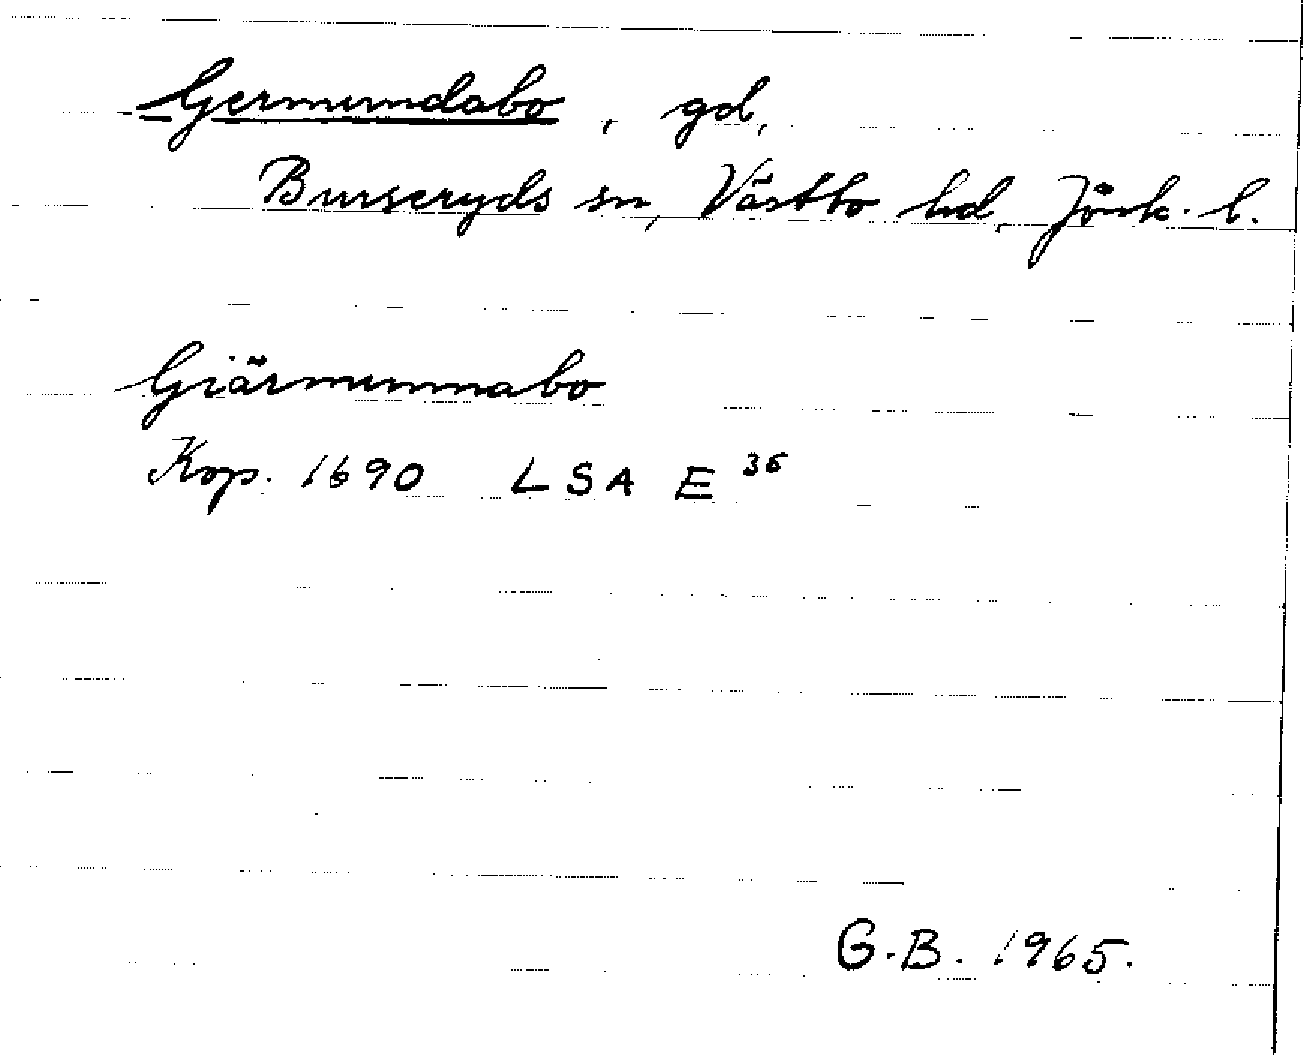 Germundabo, gd,
Burseryds sn, Västbo hd, Jönk. l.
Giärmunnabo
Kop. 1690 LSA E 36
G.B. 1965.